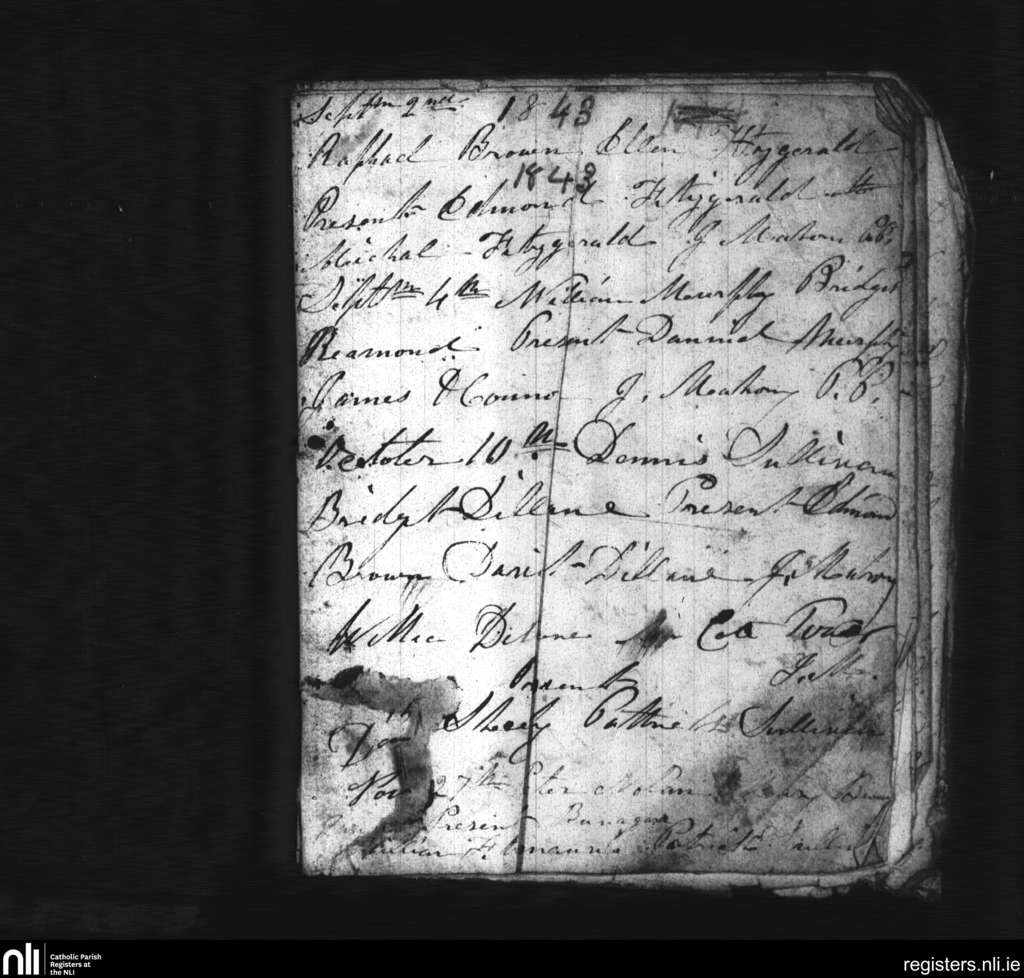 Septm 2nd 1843
Raphael Brown Ellen Fitzgerald
1843
Present Edmond Fitzgerald
Michal Fitzgerald J Mahony P.P.
Septm 4th William Murphy Bridget
Reamond Present Danniel Murphy
James O Connor J. Meahony P.P.
October 10th Dennis Sullivan
Bridget Dillane Present Edmond
Brown David Dillane J. Mahony
Dillane
Present J. Ma.
Sheehy Sullivan
Nov 27th Peter Nolan
Present
William Fitmaurice Patrick
nli Catholic Parish
Registers at
the NLI
registers.nli.ie